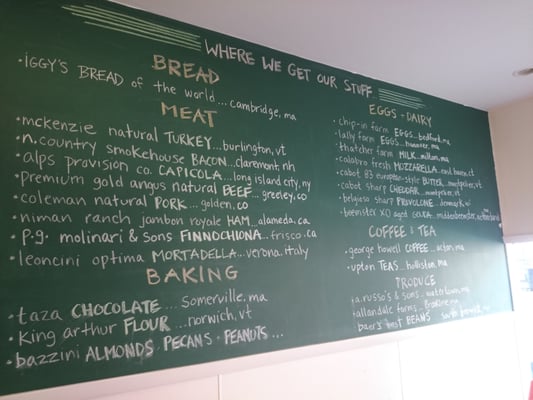 WHERE WE GET OUR STUFF
BREAD
• iGGY'S BREAD of the world... Cambridge, ma
MEAT
• mckenzie natural TURKEY... burlington, vt
• n. country smokehouse BACON... claremont, nh
• alps provision co. CAPICOLA... long island city, ny
• premium gold angus natural BEEF... greeley, co
• coleman natural PORK... golden, co
• niman ranch jambon royale HAM.. alameda, ca
• p.g. molinari & sons FINNOCHIONA... frisco, ca
• leoncini optima MORTADELLA... verona, italy
BAKING
• taza CHOCOLATE... Somerville, ma
• king arthur FLOUR... norwich, vt
• bazzini ALMONDS PECANS • PEANUTS...
EGGS • DAIRY
• chip-in farm EGGS... bedford, ma
• lally farm EGGS... hanover, ma
• thatcher farm MILK... milton, ma
• calabro fresh MOZZARELLA... east haven, ct
• cabot 83 european-style BUTTER... montpelier, vt
• cabot sharp CHEDDAR... montpelier, vt
• belgioso sharp PROVOLONE... denmark, wi
• beemster XO aged GOUDA... middenbeemster,
COFFEE & TEA
• george howell COFFEE... acton, ma
• upton TEAS... holliston, ma
PRODUCE
• a. russo's & sons... watertown, ma
• allandale farms... Brookline, ma
• baer's best BEANS